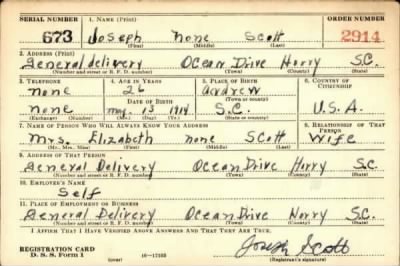 SERIAL NUMBER 1. NAME (Print) ORDER NUMBER
673 Joseph none Scott 2914
(First) (Middle) (Last)
2. ADDRESS (Print)
General delivery Ocean Drive Horry S.C.
(Number and street or R. F. D. number) (Town) (County) (State)
3. TELEPHONE 4. AGE IN YEARS 5. PLACE OF BIRTH 6. COUNTRY OF CITIZENSHIP
none 26 Andrew
DATE OF BIRTH (Town or county)
none may 13 1914 S.C. U.S.A.
(Exchange) (Number) (Mo.) (Day) (Yr.) (State or country)
7. NAME OF PERSON WHO WILL ALWAYS KNOW YOUR ADDRESS 8. RELATIONSHIP OF THAT PERSON
Mrs. Elizabeth none Scott Wife
(Mr., Mrs., Miss) (First) (Middle) (Last)
9. ADDRESS OF THAT PERSON
General Delivery Ocean Drive Horry S.C.
(Number and street or R. F. D. number) (Town) (County) (State)
10. EMPLOYER'S NAME
Self
11. PLACE OF EMPLOYMENT OR BUSINESS
General Delivery Ocean Drive Horry S.C.
(Number and street or R. F. D. number) (Town) (County) (State)
I AFFIRM THAT I HAVE VERIFIED ABOVE ANSWERS AND THAT THEY ARE TRUE.
REGISTRATION CARD Joseph Scott
D. S. S. Form 1 16—17105 (Registrant's signature)